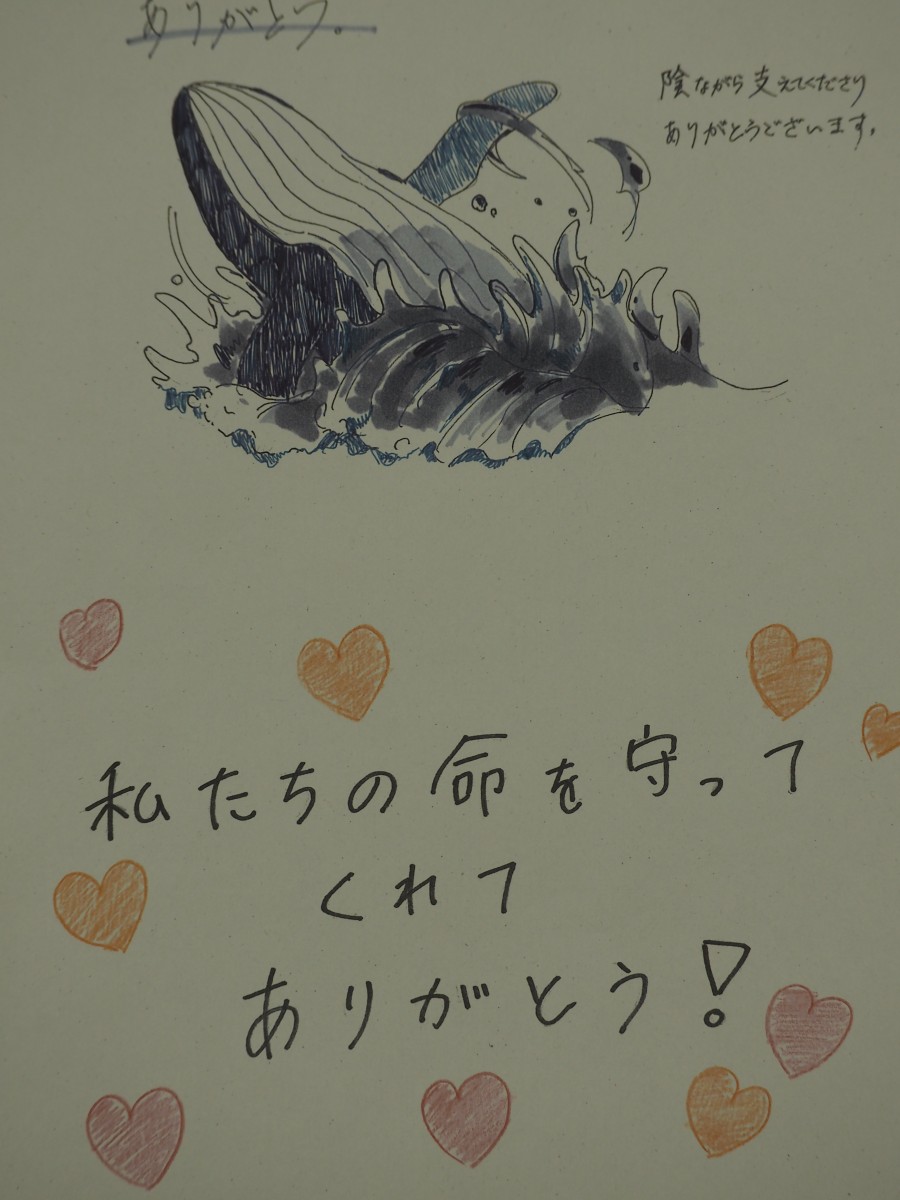 ありがとう。
陰ながら支えてくださり
ありがとうございます。
私たちの命を守って
くれて
ありがとう!